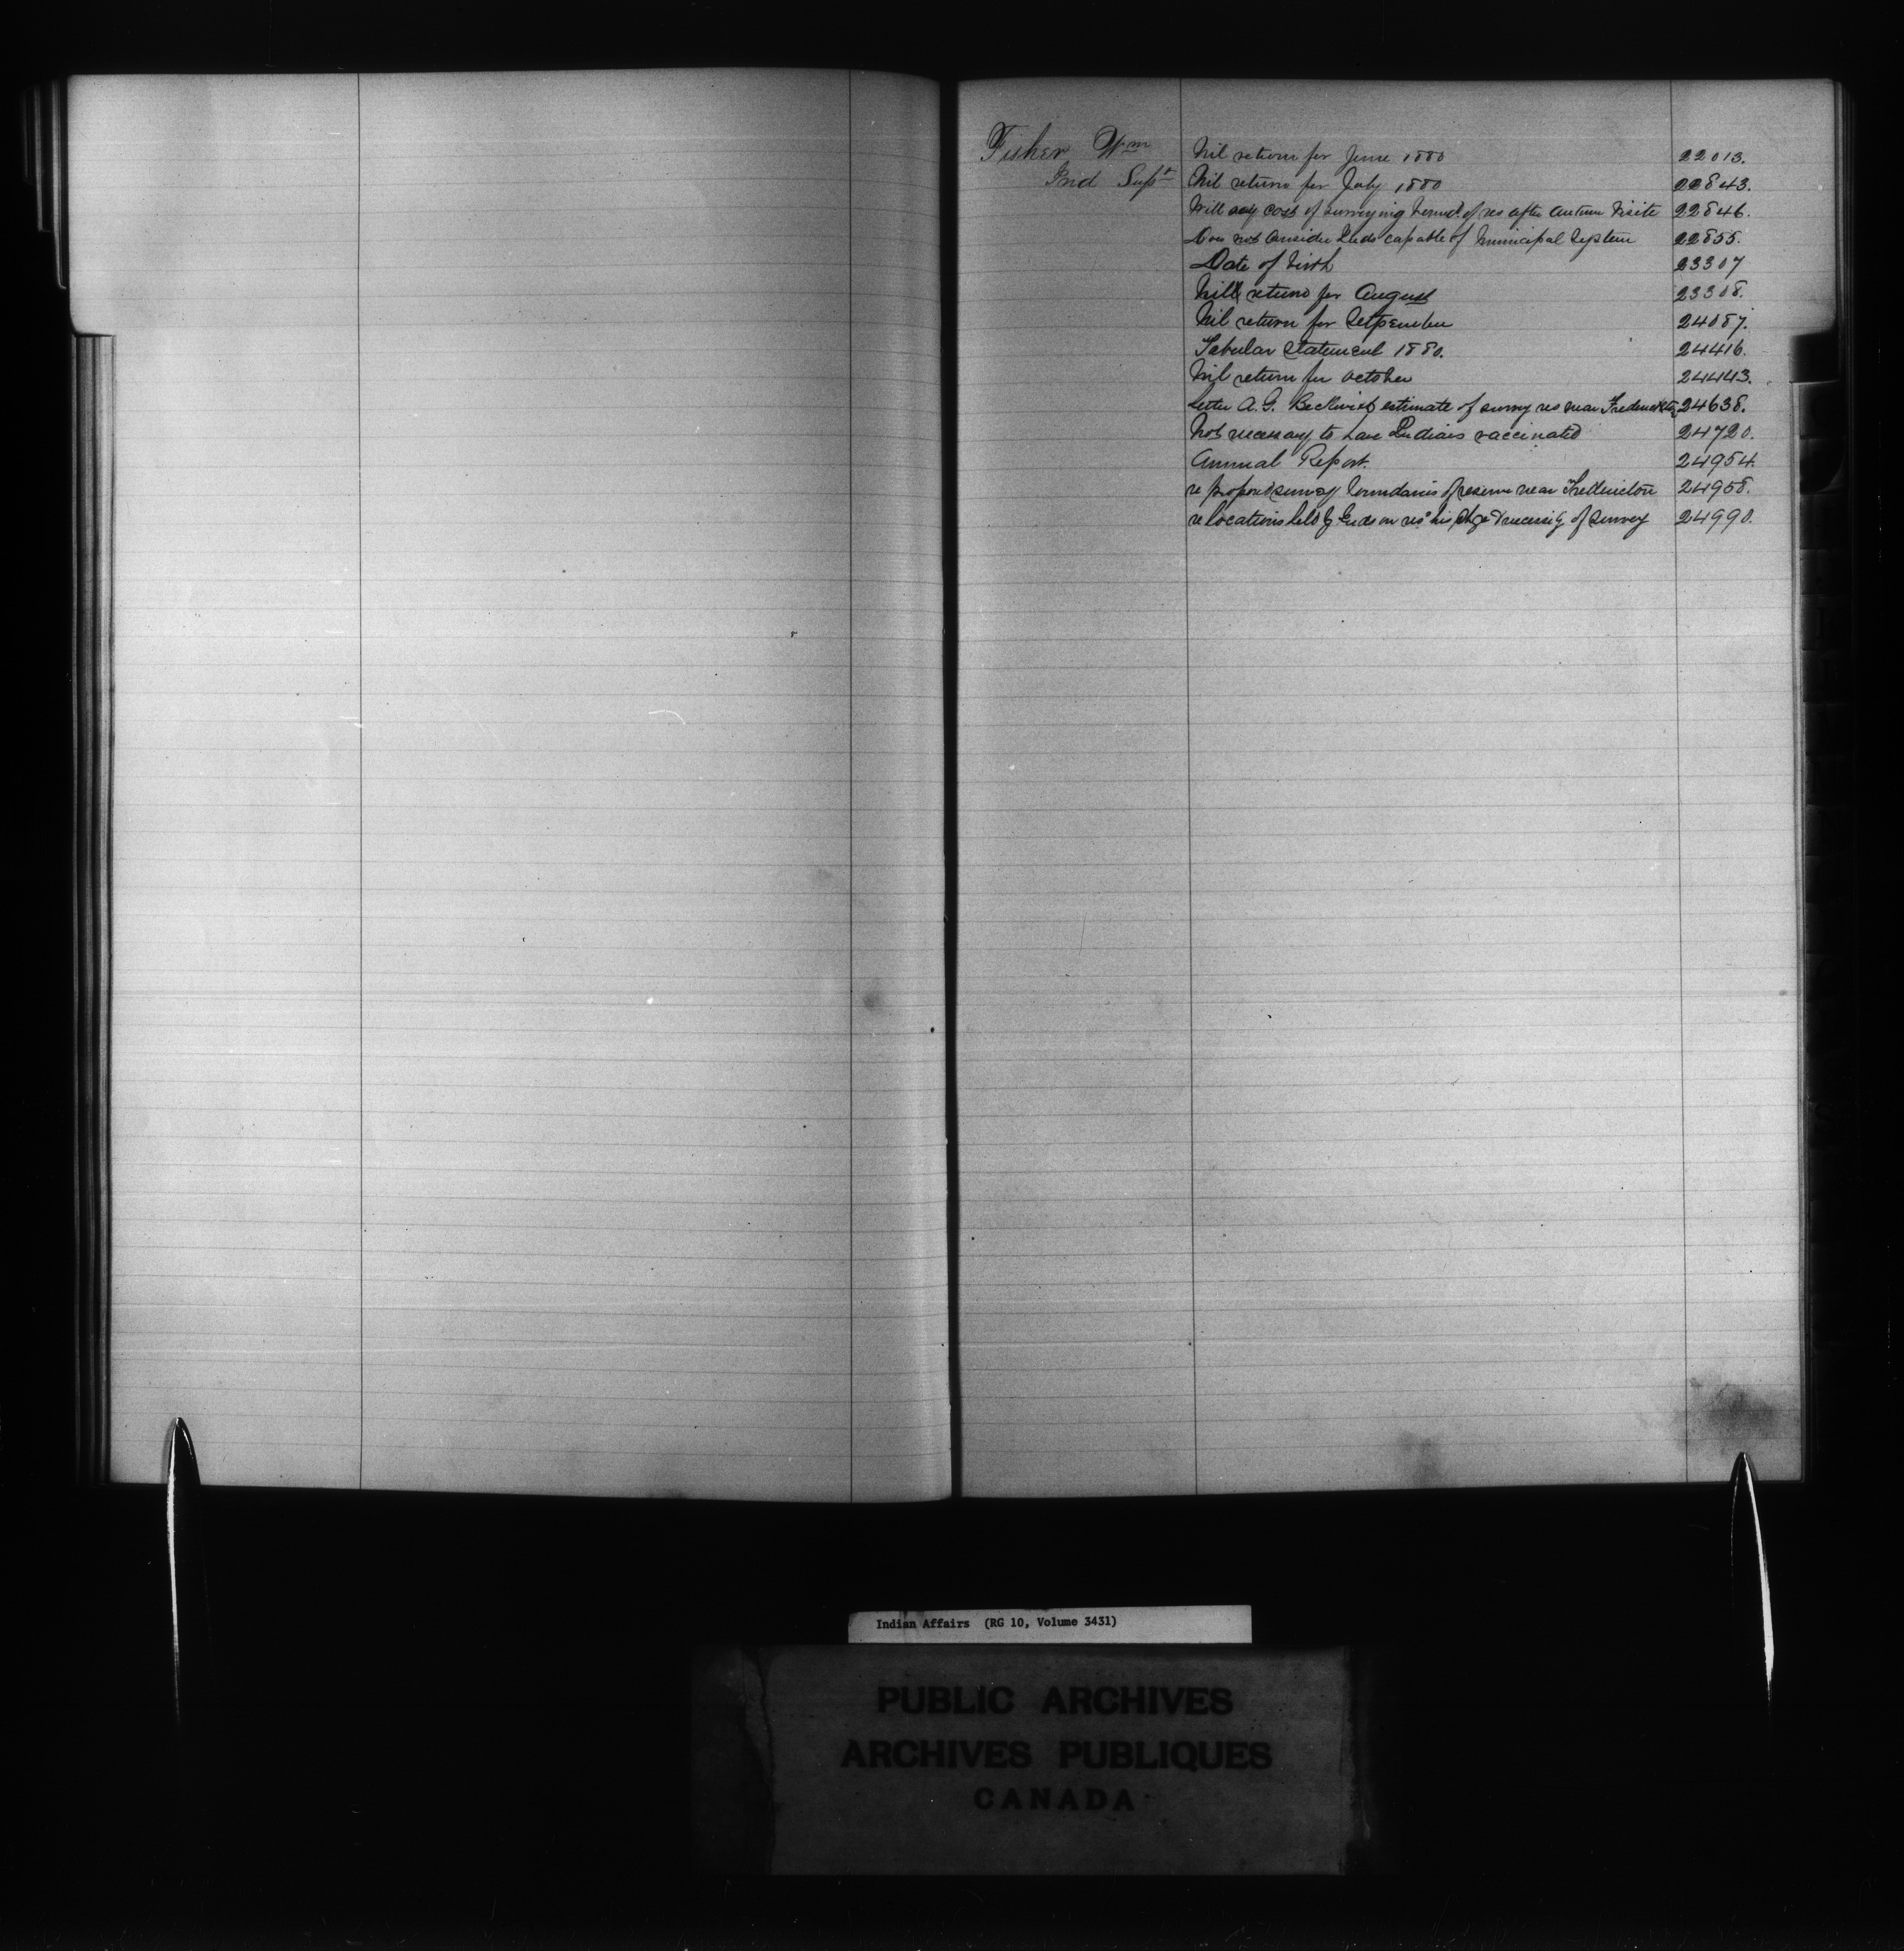 Fisher Wm Nil return for June 1880 22013.
Ind Supt Nil return for July 1880 22843.
Will cost of surveying bound. of res after Autumn Visite 22846.
Does not Consider Inds capable of Municipal System 22855.
Date of birth 23307
Nill return for August 23308.
Nil return for Setpember 24087.
Tabular Statement 1880. 24416.
Nil return for October 24443.
Letter A.G. Beckwith estimate of survey res near Fredericton 24638.
Not necessary to have Indians vaccinated 24720.
Annual Report. 24954.
re proposed survey boundaries of reserve near Fredericton 24958.
re locations held by Inds on res his & necessity of survey 24990.
Indian Affairs (RG 10, Volume 3431)
PUBLIC ARCHIVES
ARCHIVES PUBLIQUES
CANADA